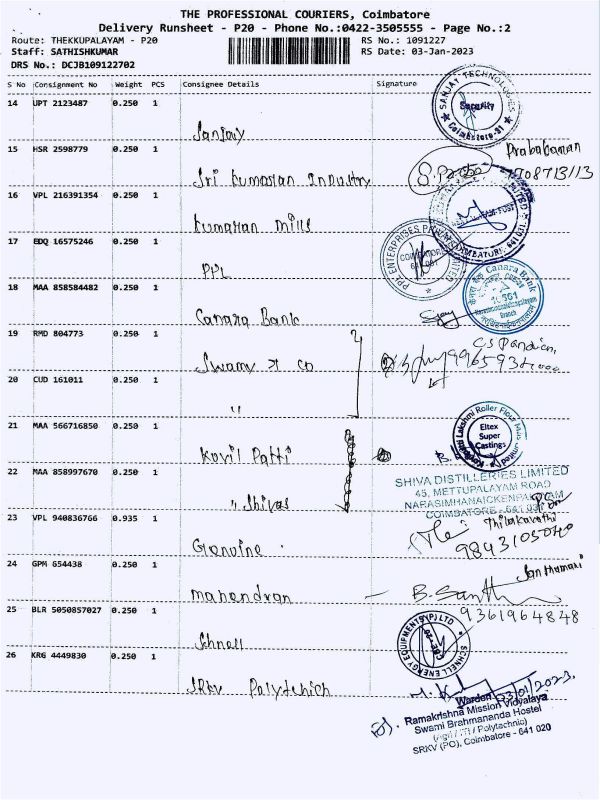 THE PROFESSIONAL COURIERS, Coimbatore
Delivery Runsheet - P20 - Phone No.:0422-3505555 - Page No.:2
Route: THEKKUPALAYAM - P20
RS No.: 1091227
Staff: SATHISHKUMAR
RS Date: 03-Jan-2023
DRS No.: DCJB109122702
S No Consignment No Weight PCS Consignee Details Signature
14 UPT 2123487 0.250 1
Sanjay
SANJAY TECHNOLOGIES
Security
Coimbatore-31
15 HSR 2598779 0.250 1
Sri Kumaran Industry
Prabakaran
16 VPL 216391354 0.250 1
Kumaran Mills
17 EDQ 16575246 0.250 1
PPL
PPI ENTERPRISES PRIVATE LIMITED
COIMBATORE
641 031
18 MAA 858584482 0.250 1
Canara Bank
Canara Bank
Branch
19 RMD 804773 0.250 1
Swamy & Co
CS Pandian,
20 CUD 161011 0.250 1
"
21 MAA 566716850 0.250 1
Kovil Patti
Lakshmi Roller Flour
Eltex
Super
Castings
22 MAA 858997670 0.250 1
" Shivas
SHIVA DISTILLERIES LIMITED
45, METTUPALAYAM ROAD
NARASIMHANAICKENPALAYAM
COIMBATORE - 641 031
23 VPL 940836766 0.935 1
Genuine
Thilakavathi
9843105040
24 GPM 654438 0.250 1
Mahendran
Santhamani
B. Santh
9361964848
25 BLR 5050857027 0.250 1
Schnell
SCHNELL ENERGY EQUIPMENTS (P) LTD
26 KRG 4449830 0.250 1
SRKV Polytchich
03/01/2023.
Warden
Ramakrishna Mission Vidyalaya
Swami Brahmananda Hostel
(Agri / ITI / Polytechnic)
SRKV (PO), Coimbatore - 641 020